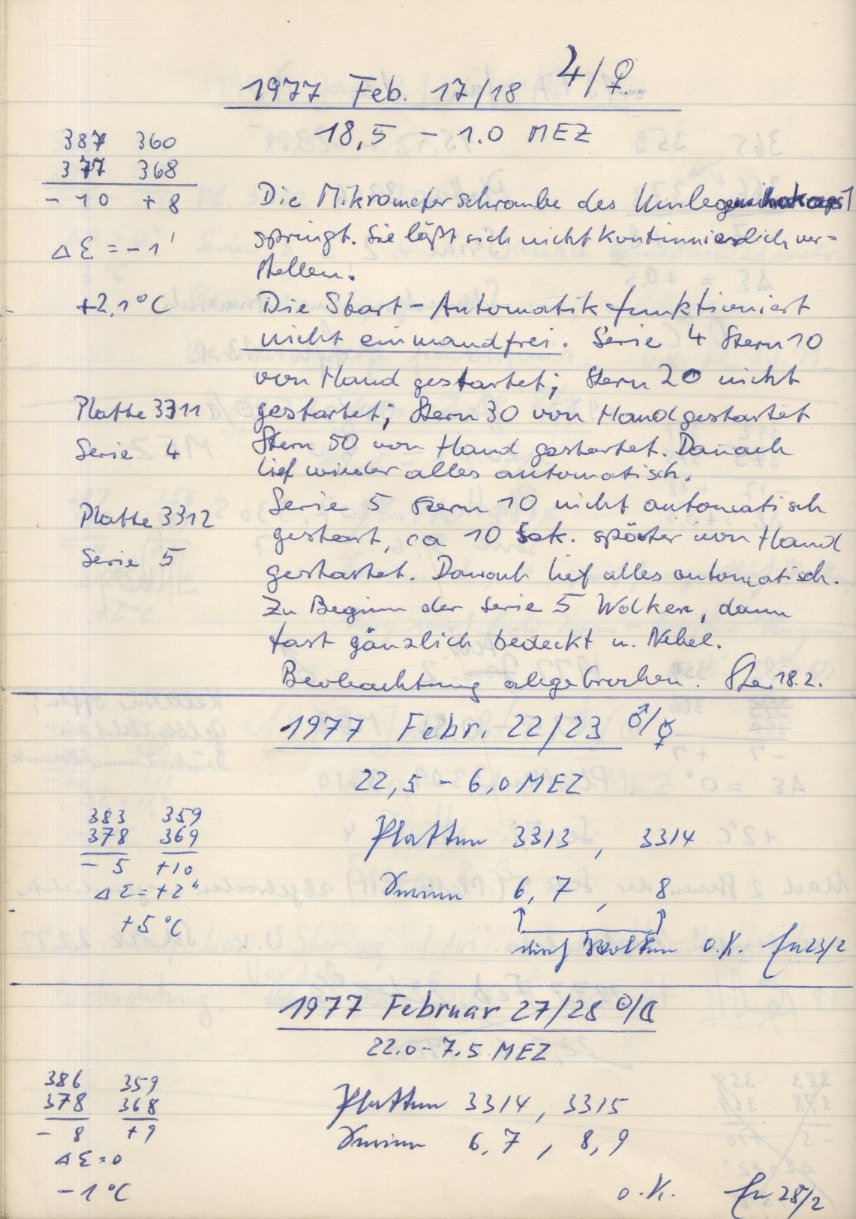 1977 Feb. 17/18 ♃/♀
18,5 – 1.0 MEZ
387 360
377 368
- 10 + 8
Δε = -1'
+2,1°C
Die Mikrometerschraube des
springt. Sie läßt sich nicht kontinuierlich ver-
stellen.
Die Start-Automatik funktioniert
nicht einwandfrei. Serie 4 Stern 10
von Hand gestartet; Stern 20 nicht
Platte 3311 gestartet; Stern 30 von Hand gestartet
Serie 4 Stern 50 von Hand gestartet. Danach
lief wieder alles automatisch.
Platte 3312 Serie 5 Stern 10 nicht automatisch
gestart, ca 10 Sek. später von Hand
Serie 5 gestartet. Danach lief alles automatisch.
Zu Beginn der Serie 5 Wolken, dann
fast gänzlich bedeckt u. Nebel.
Beobachtung abgebrochen. Ste 18.2.
1977 Febr. 22/23 ♂/☿
22,5 – 6,0 MEZ
383 359
378 369
- 5 +10
Δε = +2"
+5°C
Platten 3313 , 3314
Serien 6, 7 , 8
durch Wolken o.K. 23/2
1977 Februar 27/28 ☉/☾
22.0 – 7.5 MEZ
386 359
378 368
- 8 +9
Δε = 0
-1°C
Platten 3314 , 3315
Serien 6, 7 , 8, 9
o.K. 28/2